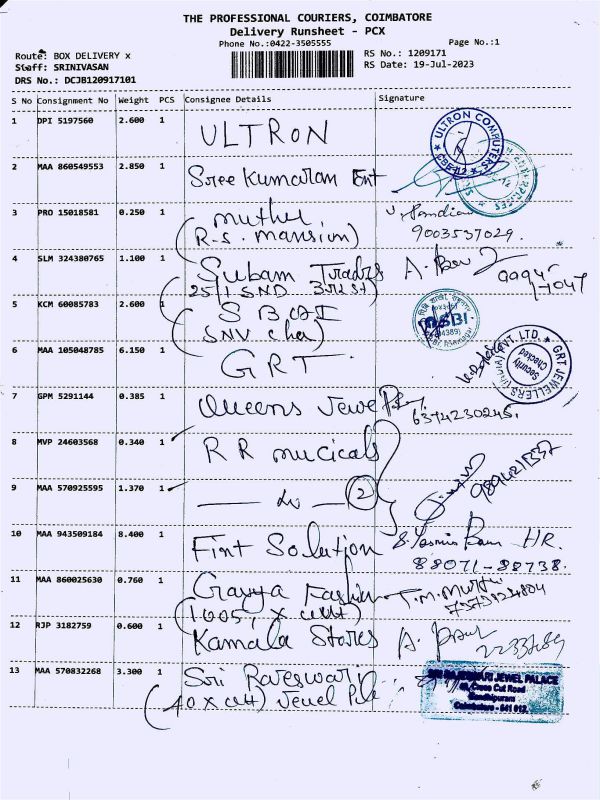 THE PROFESSIONAL COURIERS, COIMBATORE
Delivery Runsheet - PCX
Phone No.:0422-3505555
Page No.:1
Route: BOX DELIVERY x
RS No.: 1209171
Staff: SRINIVASAN
RS Date: 19-Jul-2023
DRS No.: DCJB120917101
S No Consignment No Weight PCS Consignee Details Signature
1 DPI 5197560 2.600 1 ULTRON
ULTRON COMPUTERS
CBE-12
2 MAA 860549553 2.850 1 Sree Kumaran Ent
3 PRO 15018581 0.250 1 muthu
(R.S. mansion)
9003537029.
4 SLM 324380765 1.100 1 Subam Traders
5 KCM 60085783 2.600 1 SBI
SBI
6 MAA 105048785 6.150 1 GRT
GRT JEWELLERS PVT. LTD.
Security
Checked
7 GPM 5291144 0.385 1 Queens Jewel
6374230245.
8 MVP 24603568 0.340 1 RR mucicals
9 MAA 570925595 1.370 1 2
10 MAA 943509184 8.400 1 Fint Solution
HR.
88071-88738.
11 MAA 860025630 0.760 1 Fashion
T.M.
12 RJP 3182759 0.600 1 Kamala Stores
13 MAA 570832268 3.300 1 Sri
(40 x cut) Jewel
SRI RAJESWARI JEWEL PALACE
Cross Cut Road
Gandhipuram
Coimbatore - 641 012.